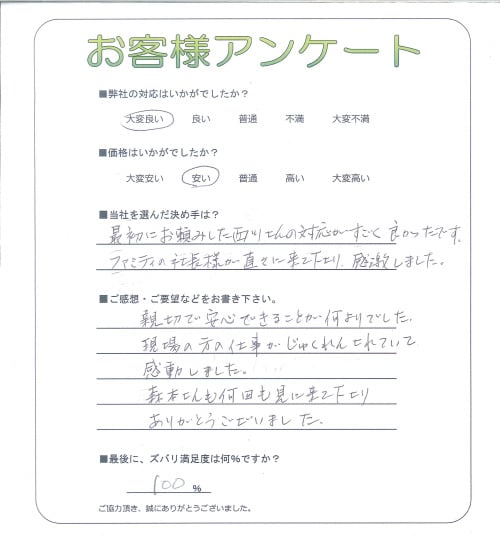 お客様アンケート
■弊社の対応はいかがでしたか?
大変良い 良い 普通 不満 大変不満
■価格はいかがでしたか?
大変安い 安い 普通 高い 大変高い
■当社を選んだ決め手は?
最初にお頼みした西川さんの対応がすごく良かったです。
ファミティの社長様が直々に来て下さり、感激しました。
■ご感想・ご要望などをお書き下さい。
親切で安心できることが何よりでした。
現場の方の仕事がじゅくれんされていて
感動しました。
森本さんも何回も見に来て下さり
ありがとうございました。
■最後に、ズバリ満足度は何%ですか?
100 %
ご協力頂き、誠にありがとうございました。